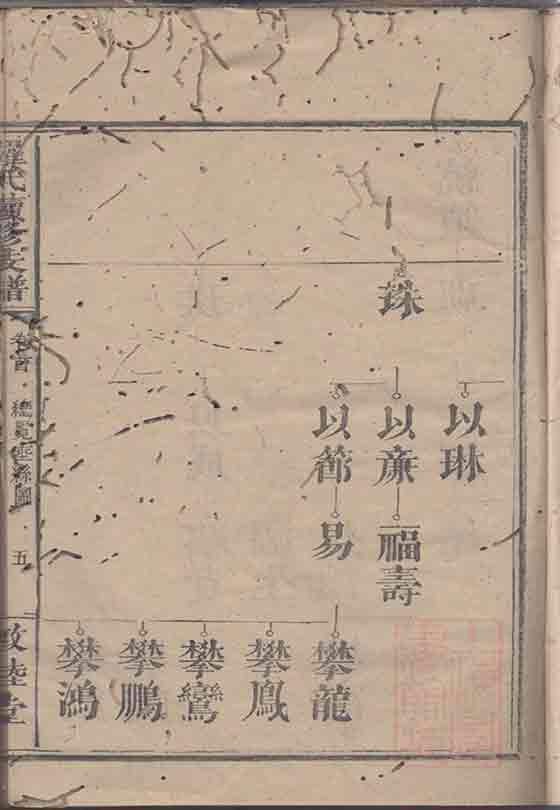 銖
以琳
以廉
以節
福壽
易
攀龍
攀鳳
攀鸞
攀鵬
攀鴻
修支譜
卷首
垂絲圖
五
敦睦堂